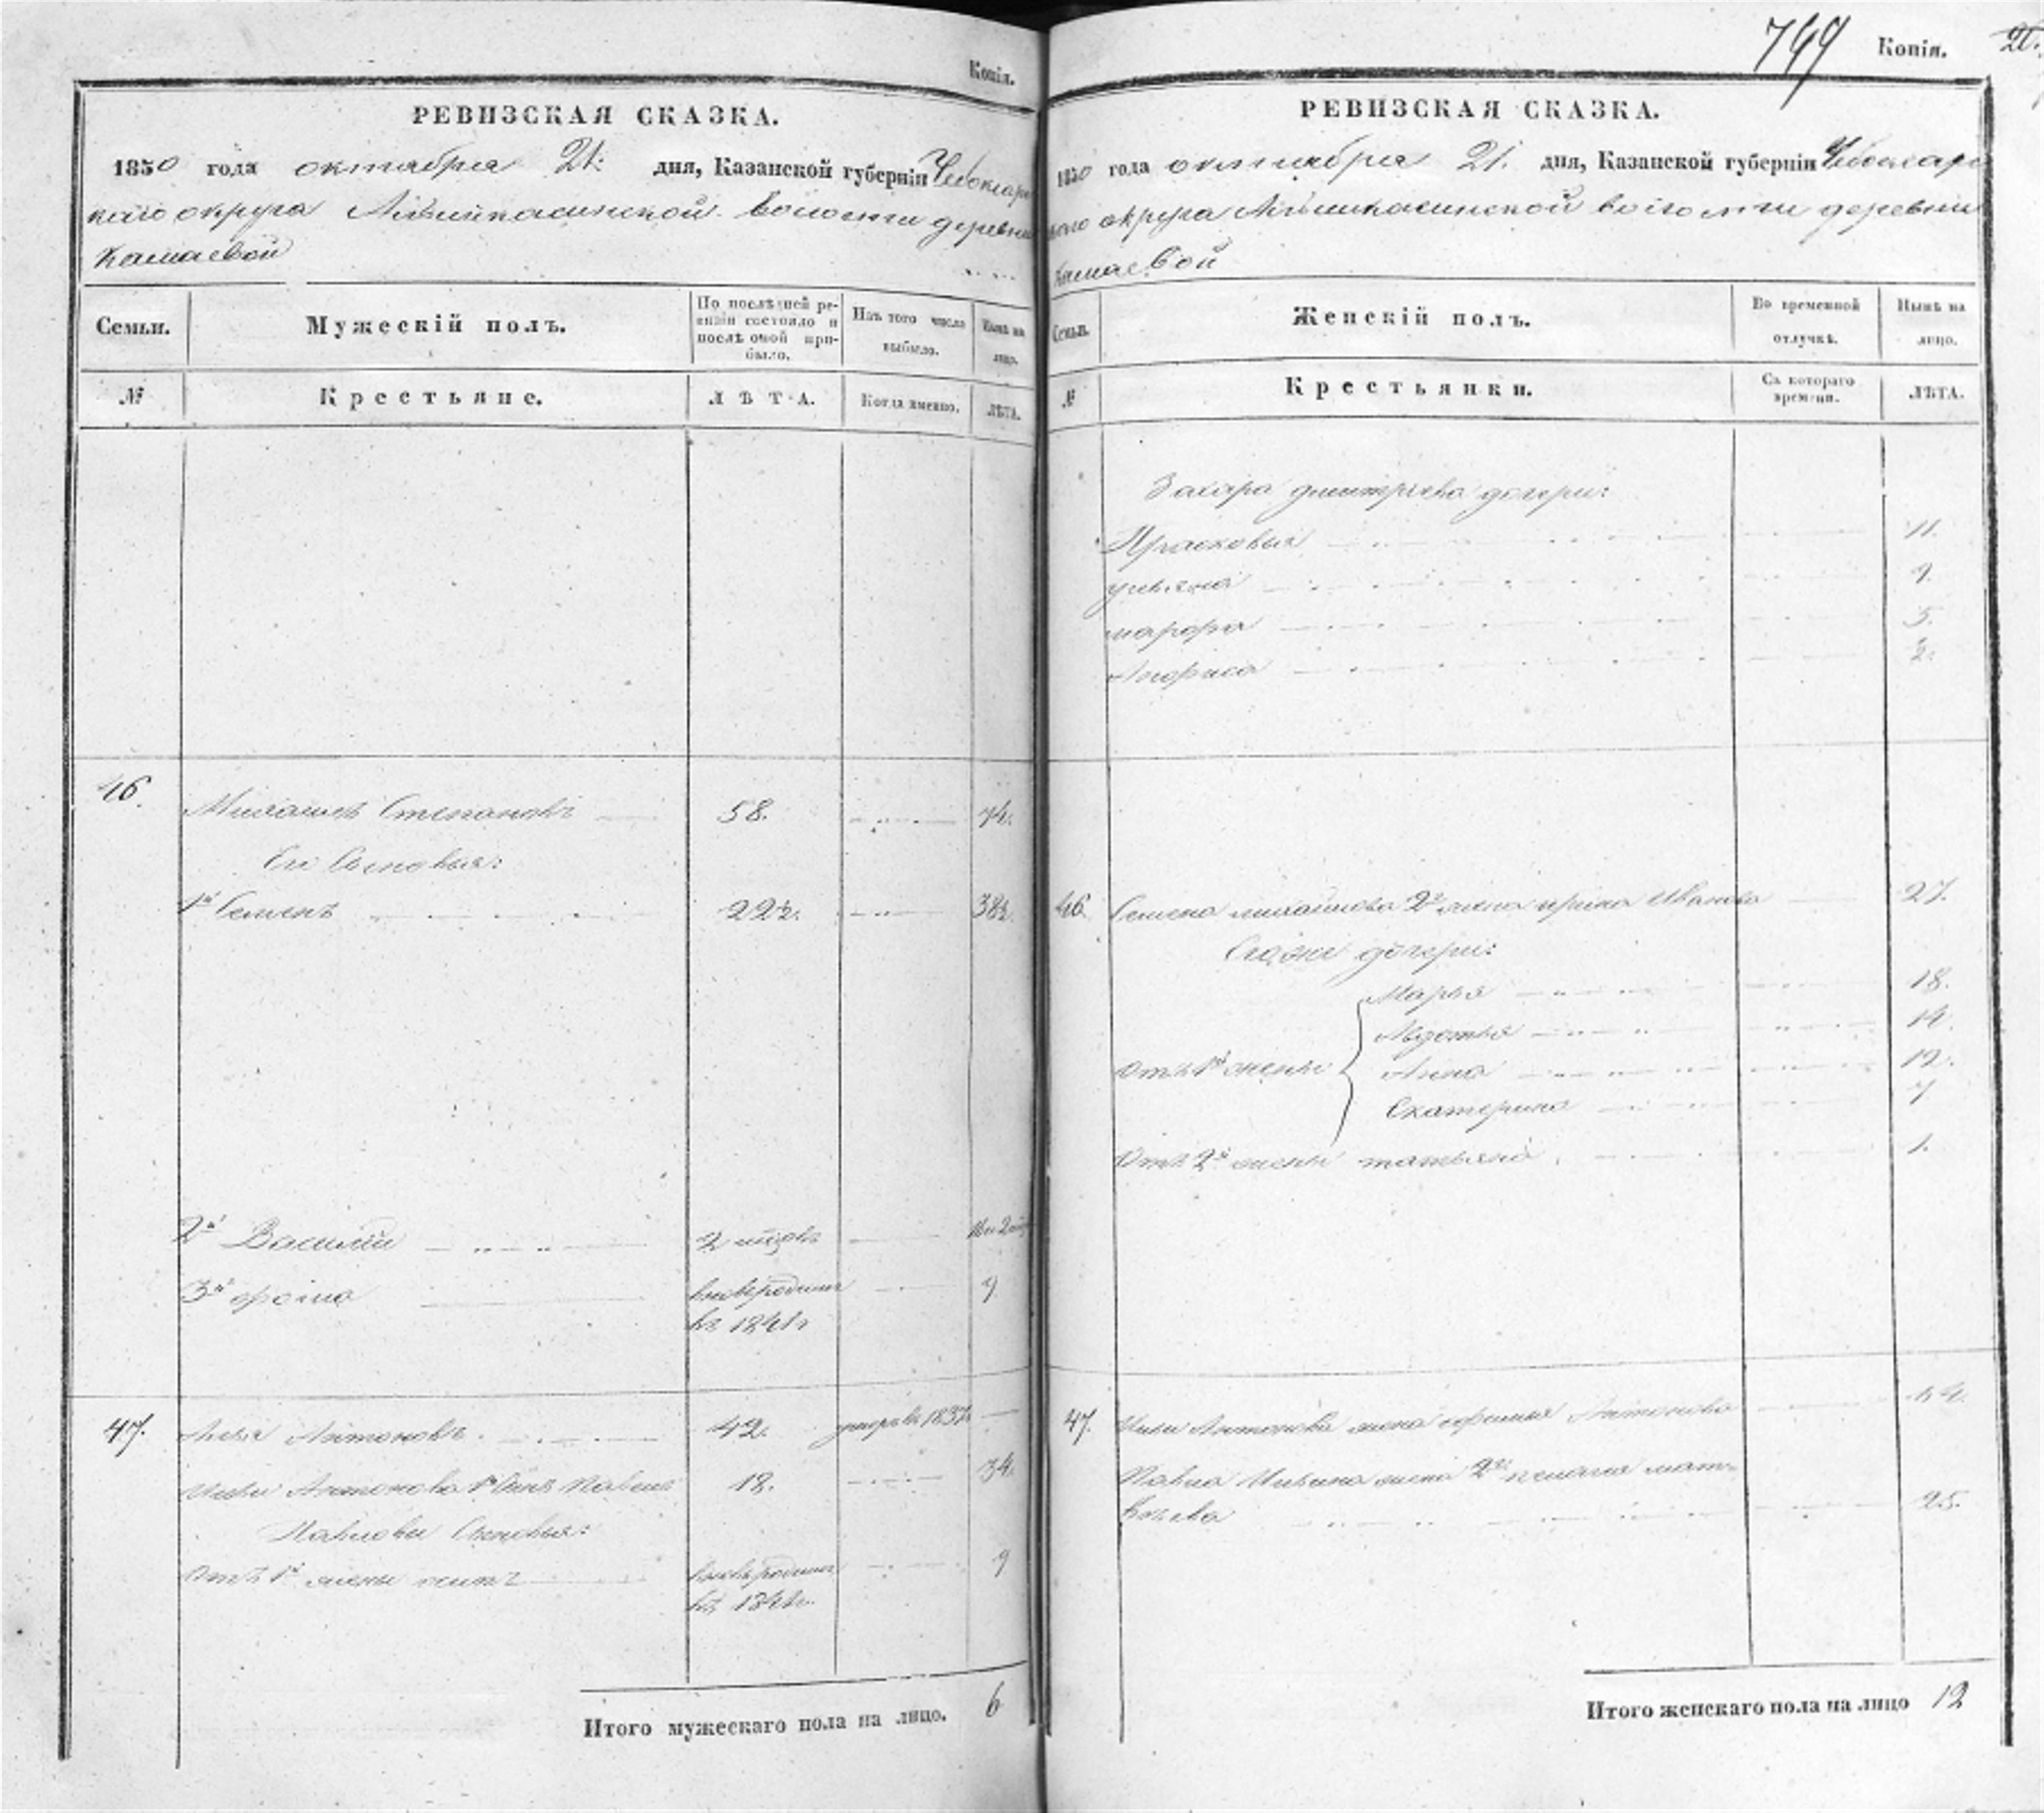 Копія.
РЕВИЗСКАЯ СКАЗКА.
1850 года октября 21: дня, Казанской губерніи Чебоксар
скаго округа волости деревни
Камаевой
Семьи.
Мужескій полъ.
По послѣдней ре-
визіи состояло и
послѣ оной при-
было.
Изъ того числа
выбыло.
Нынѣ на
лицо.
№
Крестьяне.
ЛѢТА.
Когда именно.
ЛѢТА.
46.
Михайлъ Степановъ 58. 74.
Его Сыновья:
1й Семенъ 22½. 38½.
2й Василій
3й
вновьрожденъ 9
въ 1841г
47. Илья Антоновъ. 42. умеръ въ 1837г
Ильи Антонова 1й Сынъ Павелъ 18. 34.
Павловы Сыновья:
Отъ 1й жены вновьрожденъ 9
въ 1841г.
Итого мужескаго пола на лицо. 6
749 Копія.
РЕВИЗСКАЯ СКАЗКА.
1850 года октября 21. дня, Казанской губерніи Чебоксар
скаго округа волости деревни
Камаевой
Семьи.
Женскій полъ.
Во временной
отлучкѣ.
Нынѣ на
лицо.
№
Крестьянки.
Съ котораго
времени.
ЛѢТА.
Захара Дмитріева дочери:
Прасковья 11.
ульяна 9.
марфа 5.
2.
46. Семена михайлова 2я жена ирина Иванова 27.
Его же дочери:
Марья 18.
Авдотья 14.
Отъ 1й жены Анна 12.
Екатерина 7
Отъ 2й жены татьяна 1.
47. Ильи Антонова жена Антонова
Павла Ильина жена 2я пелагея мат-
вѣева 25.
Итого женскаго пола на лицо 12